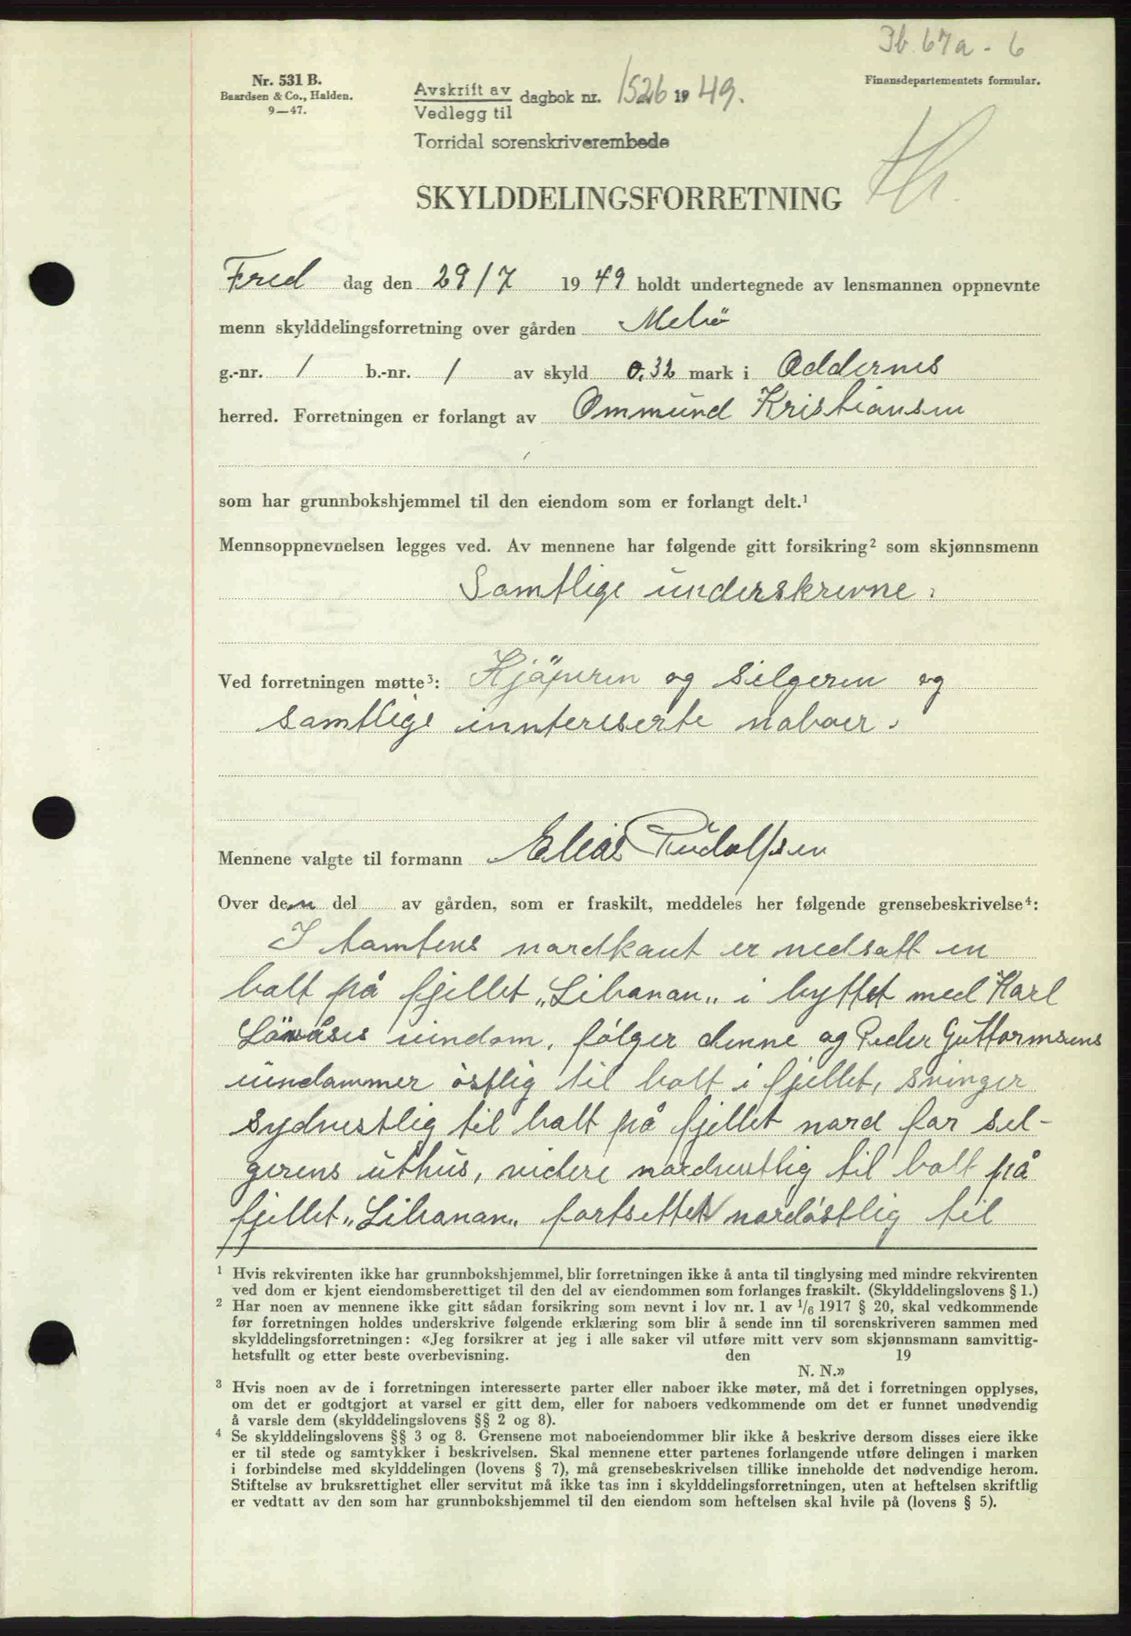 3b. 67a - 6
Nr. 531 B.
Baardsen & Co., Halden.
9—47.
Finansdepartementets formular.
Avskrift av
Vedlegg til
dagbok nr. 1526 1949.
Torridal sorenskriverembede
SKYLDDELINGSFORRETNING
Fred dag den 29/7 1949 holdt undertegnede av lensmannen oppnevnte
menn skylddelingsforretning over gården Mebö
g.-nr. 1 b.-nr. 1 av skyld 0,32 mark i Oddernes
herred. Forretningen er forlangt av Ommund Kristiansen
som har grunnbokshjemmel til den eiendom som er forlangt delt.¹
Mennsoppnevnelsen legges ved. Av mennene har følgende gitt forsikring² som skjønnsmenn
Samtlige underskrevne.
Ved forretningen møtte³: Kjöperen og Selgeren og
samtlige innteresserte naboer.
Mennene valgte til formann Elias Rudolfsen
Over den del av gården, som er fraskilt, meddeles her følgende grensebeskrivelse⁴:
I tomtens nordkant er nedsatt en
bolt på fjellet „Libanon„ i byttet med Karl
Lövåses eiendom, fölger denne og Peder Guttormsens
eiendommer östlig til bolt i fjellet, svinger
sydvestlig til bolt på fjellet nord for sel-
gerens uthus, videre nordvestlig til bolt på
fjellet „Libanon„ fortsetter nordöstlig til
¹ Hvis rekvirenten ikke har grunnbokshjemmel, blir forretningen ikke å anta til tinglysing med mindre rekvirenten
ved dom er kjent eiendomsberettiget til den del av eiendommen som forlanges fraskilt. (Skylddelingslovens § 1.)
² Har noen av mennene ikke gitt sådan forsikring som nevnt i lov nr. 1 av 1/6 1917 § 20, skal vedkommende
før forretningen holdes underskrive følgende erklæring som blir å sende inn til sorenskriveren sammen med
skylddelingsforretningen: «Jeg forsikrer at jeg i alle saker vil utføre mitt verv som skjønnsmann samvittig-
hetsfullt og etter beste overbevisning. den 19
N. N.»
³ Hvis noen av de i forretningen interesserte parter eller naboer ikke møter, må det i forretningen opplyses,
om det er godtgjort at varsel er gitt dem, eller for naboers vedkommende om det er funnet unødvendig
å varsle dem (skylddelingslovens §§ 2 og 8).
⁴ Se skylddelingslovens §§ 3 og 8. Grensene mot naboeiendommer blir ikke å beskrive dersom disses eiere ikke
er til stede og samtykker i beskrivelsen. Skal mennene etter partenes forlangende utføre delingen i marken
i forbindelse med skylddelingen (lovens § 7), må grensebeskrivelsen tillike inneholde det nødvendige herom.
Stiftelse av bruksrettighet eller servitut må ikke tas inn i skylddelingsforretningen, uten at heftelsen skriftlig
er vedtatt av den som har grunnbokshjemmel til den eiendom som heftelsen skal hvile på (lovens § 5).